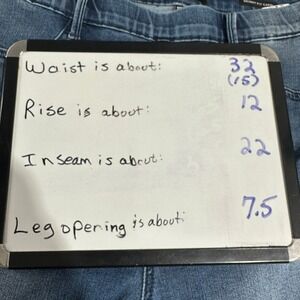 Waist is about: 32
(15)
Rise is about: 12
Inseam is about: 22
Leg opening is about: 7.5